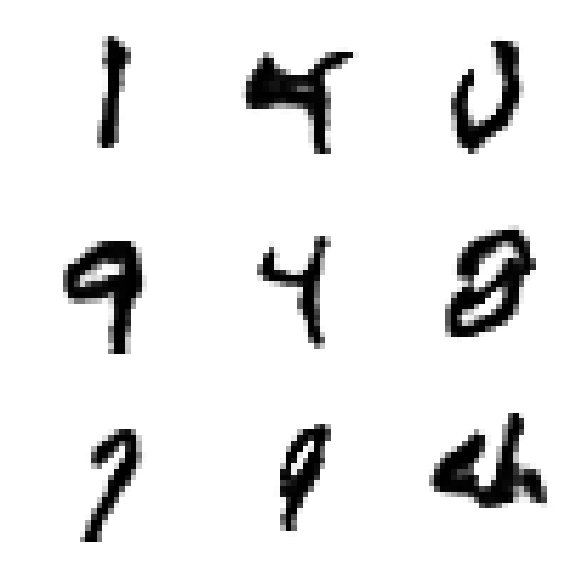 1 4 0
9 4 8
7 9